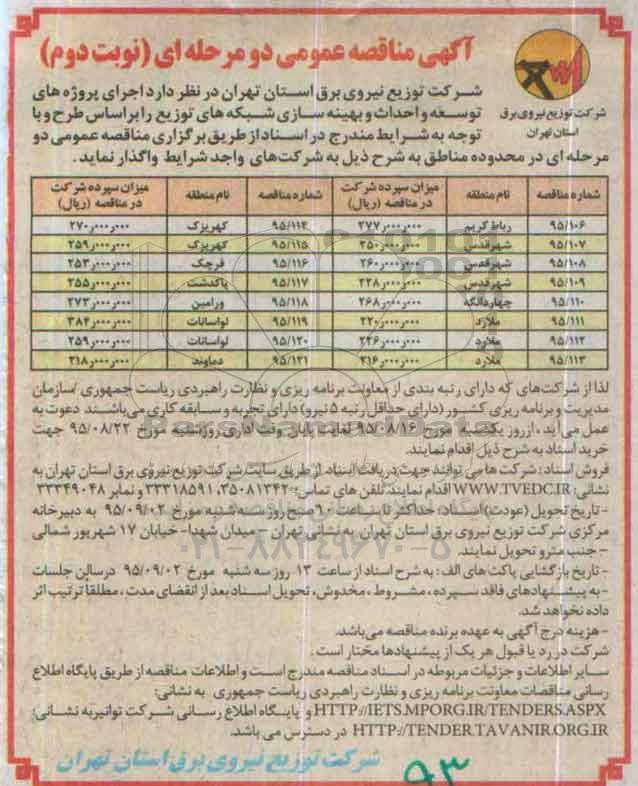 آگهی مناقصه عمومی دو مرحله ای (نوبت دوم)
شرکت توزیع نیروی برق
استان تهران
شرکت توزیع نیروی برق استان تهران در نظر دارد اجرای پروژه های
توسعه و احداث و بهینه سازی شبکه های توزیع را براساس طرح و با
توجه به شرایط مندرج در اسناد از طریق برگزاری مناقصه عمومی دو
مرحله ای در محدوده مناطق به شرح ذیل به شرکت‌های واجد شرایط واگذار نماید.
شماره مناقصه نام منطقه میزان سپرده شرکت در مناقصه (ریال) شماره مناقصه نام منطقه میزان سپرده شرکت در مناقصه (ریال)
۹۵/۱۰۶ رباط کریم ۲۷۷٫۰۰۰٫۰۰۰ ۹۵/۱۱۴ کهریزک ۲۷۰٫۰۰۰٫۰۰۰
۹۵/۱۰۷ شهرقدس ۲۵۰٫۰۰۰٫۰۰۰ ۹۵/۱۱۵ کهریزک ۲۵۹٫۰۰۰٫۰۰۰
۹۵/۱۰۸ شهرقدس ۲۶۰٫۰۰۰٫۰۰۰ ۹۵/۱۱۶ قرچک ۲۵۳٫۰۰۰٫۰۰۰
۹۵/۱۰۹ شهرقدس ۲۲۸٫۰۰۰٫۰۰۰ ۹۵/۱۱۷ پاکدشت ۲۵۵٫۰۰۰٫۰۰۰
۹۵/۱۱۰ چهاردانگه ۲۶۸٫۰۰۰٫۰۰۰ ۹۵/۱۱۸ ورامین ۲۷۳٫۰۰۰٫۰۰۰
۹۵/۱۱۱ ملارد ۲۲۰٫۰۰۰٫۰۰۰ ۹۵/۱۱۹ لواسانات ۳۸۴٫۰۰۰٫۰۰۰
۹۵/۱۱۲ ملارد ۲۴۶٫۰۰۰٫۰۰۰ ۹۵/۱۲۰ لواسانات ۲۵۹٫۰۰۰٫۰۰۰
۹۵/۱۱۳ ملارد ۲۱۶٫۰۰۰٫۰۰۰ ۹۵/۱۲۱ دماوند ۲۱۸٫۰۰۰٫۰۰۰
لذا از شرکت‌های که دارای رتبه بندی از معاونت برنامه ریزی و نظارت راهبردی ریاست جمهوری /سازمان
مدیریت و برنامه ریزی کشور (دارای حداقل رتبه ۵ نیرو) دارای تجربه و سابقه کاری می‌باشند دعوت به
عمل می آید، از روز یکشنبه مورخ ۹۵/۰۸/۱۶ لغایت پایان وقت اداری روز شنبه مورخ ۹۵/۰۸/۲۲ جهت
خرید اسناد به شرح ذیل اقدام نمایند.
فروش اسناد: شرکت ها می توانند جهت دریافت اسناد از طریق سایت شرکت توزیع نیروی برق استان تهران به
نشانی: WWW.TVEDC.IR اقدام نمایند. تلفن های تماس: ۳۵۰۸۱۳۴۲، ۳۳۳۱۸۵۹۱ و نمابر ۳۳۳۴۹۰۴۸
- تاریخ تحویل (عودت) اسناد: حداکثر تا ساعت ۱۰ صبح روز سه شنبه مورخ ۹۵/۰۹/۰۲ به دبیرخانه
مرکزی شرکت توزیع نیروی برق استان تهران به نشانی تهران - میدان شهدا- خیابان ۱۷ شهریور شمالی
- جنب مترو تحویل نمایند.
- تاریخ بازگشایی پاکت های الف: به شرح اسناد از ساعت ۱۳ روز سه شنبه مورخ ۹۵/۰۹/۰۲ درسالن جلسات
- به پیشنهادهای فاقد سپرده، مشروط، مخدوش، تحویل اسناد بعد از انقضای مدت، مطلقا ترتیب اثر
داده نخواهد شد.
- هزینه درج آگهی به عهده برنده مناقصه می‌باشد.
شرکت در رد یا قبول هر یک از پیشنهادها مختار است.
سایر اطلاعات و جزئیات مربوطه در اسناد مناقصه مندرج است و اطلاعات مناقصه از طریق پایگاه اطلاع
رسانی مناقصات معاونت برنامه ریزی و نظارت راهبردی ریاست جمهوری به نشانی:
HTTP://IETS.MPORG.IR/TENDERS.ASPX و پایگاه اطلاع رسانی شرکت توانیر به نشانی:
HTTP://TENDER.TAVANIR.ORG.IR در دسترس می باشد.
شرکت توزیع نیروی برق استان تهران
۹۳